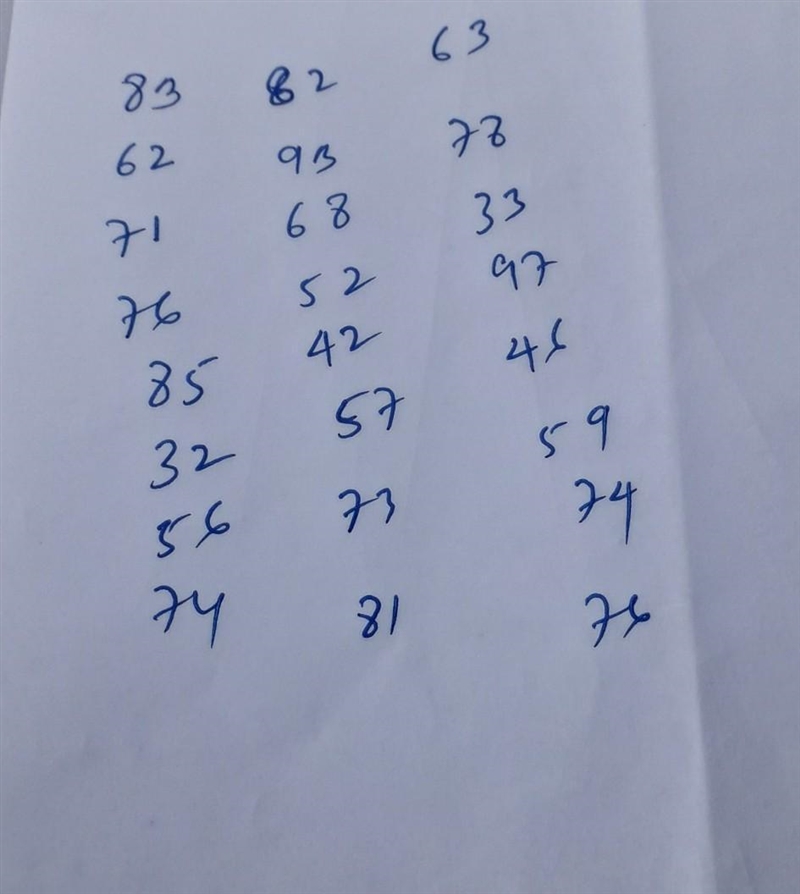 83 82 63
62 93 78
71 68 33
76 52 97
85 42 46
32 57 59
56 73 74
74 81 76